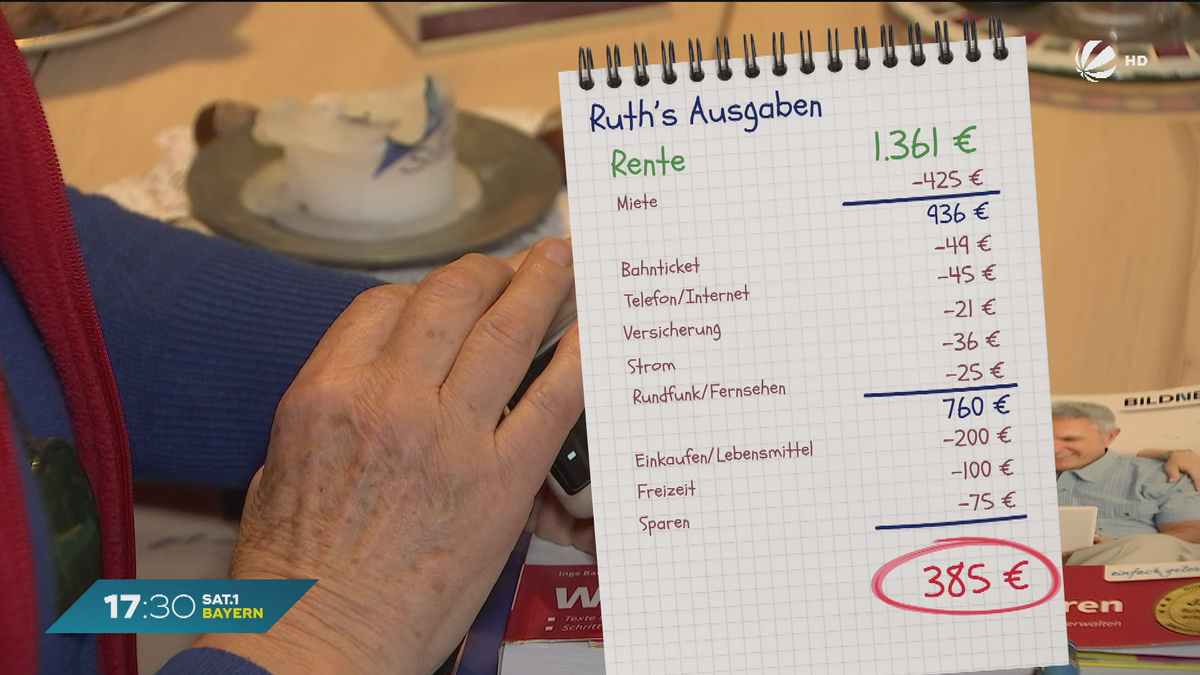 HD
Ruth's Ausgaben
Rente 1.361 €
Miete -425 €
936 €
Bahnticket -49 €
Telefon/Internet -45 €
Versicherung -21 €
Strom -36 €
Rundfunk/Fernsehen -25 €
760 €
Einkaufen/Lebensmittel -200 €
Freizeit -100 €
Sparen -75 €
385 €
BILDNE
einfach
Inge Ba
W
Texte
Schritt
ren
erwalten
17:30 SAT.1
BAYERN